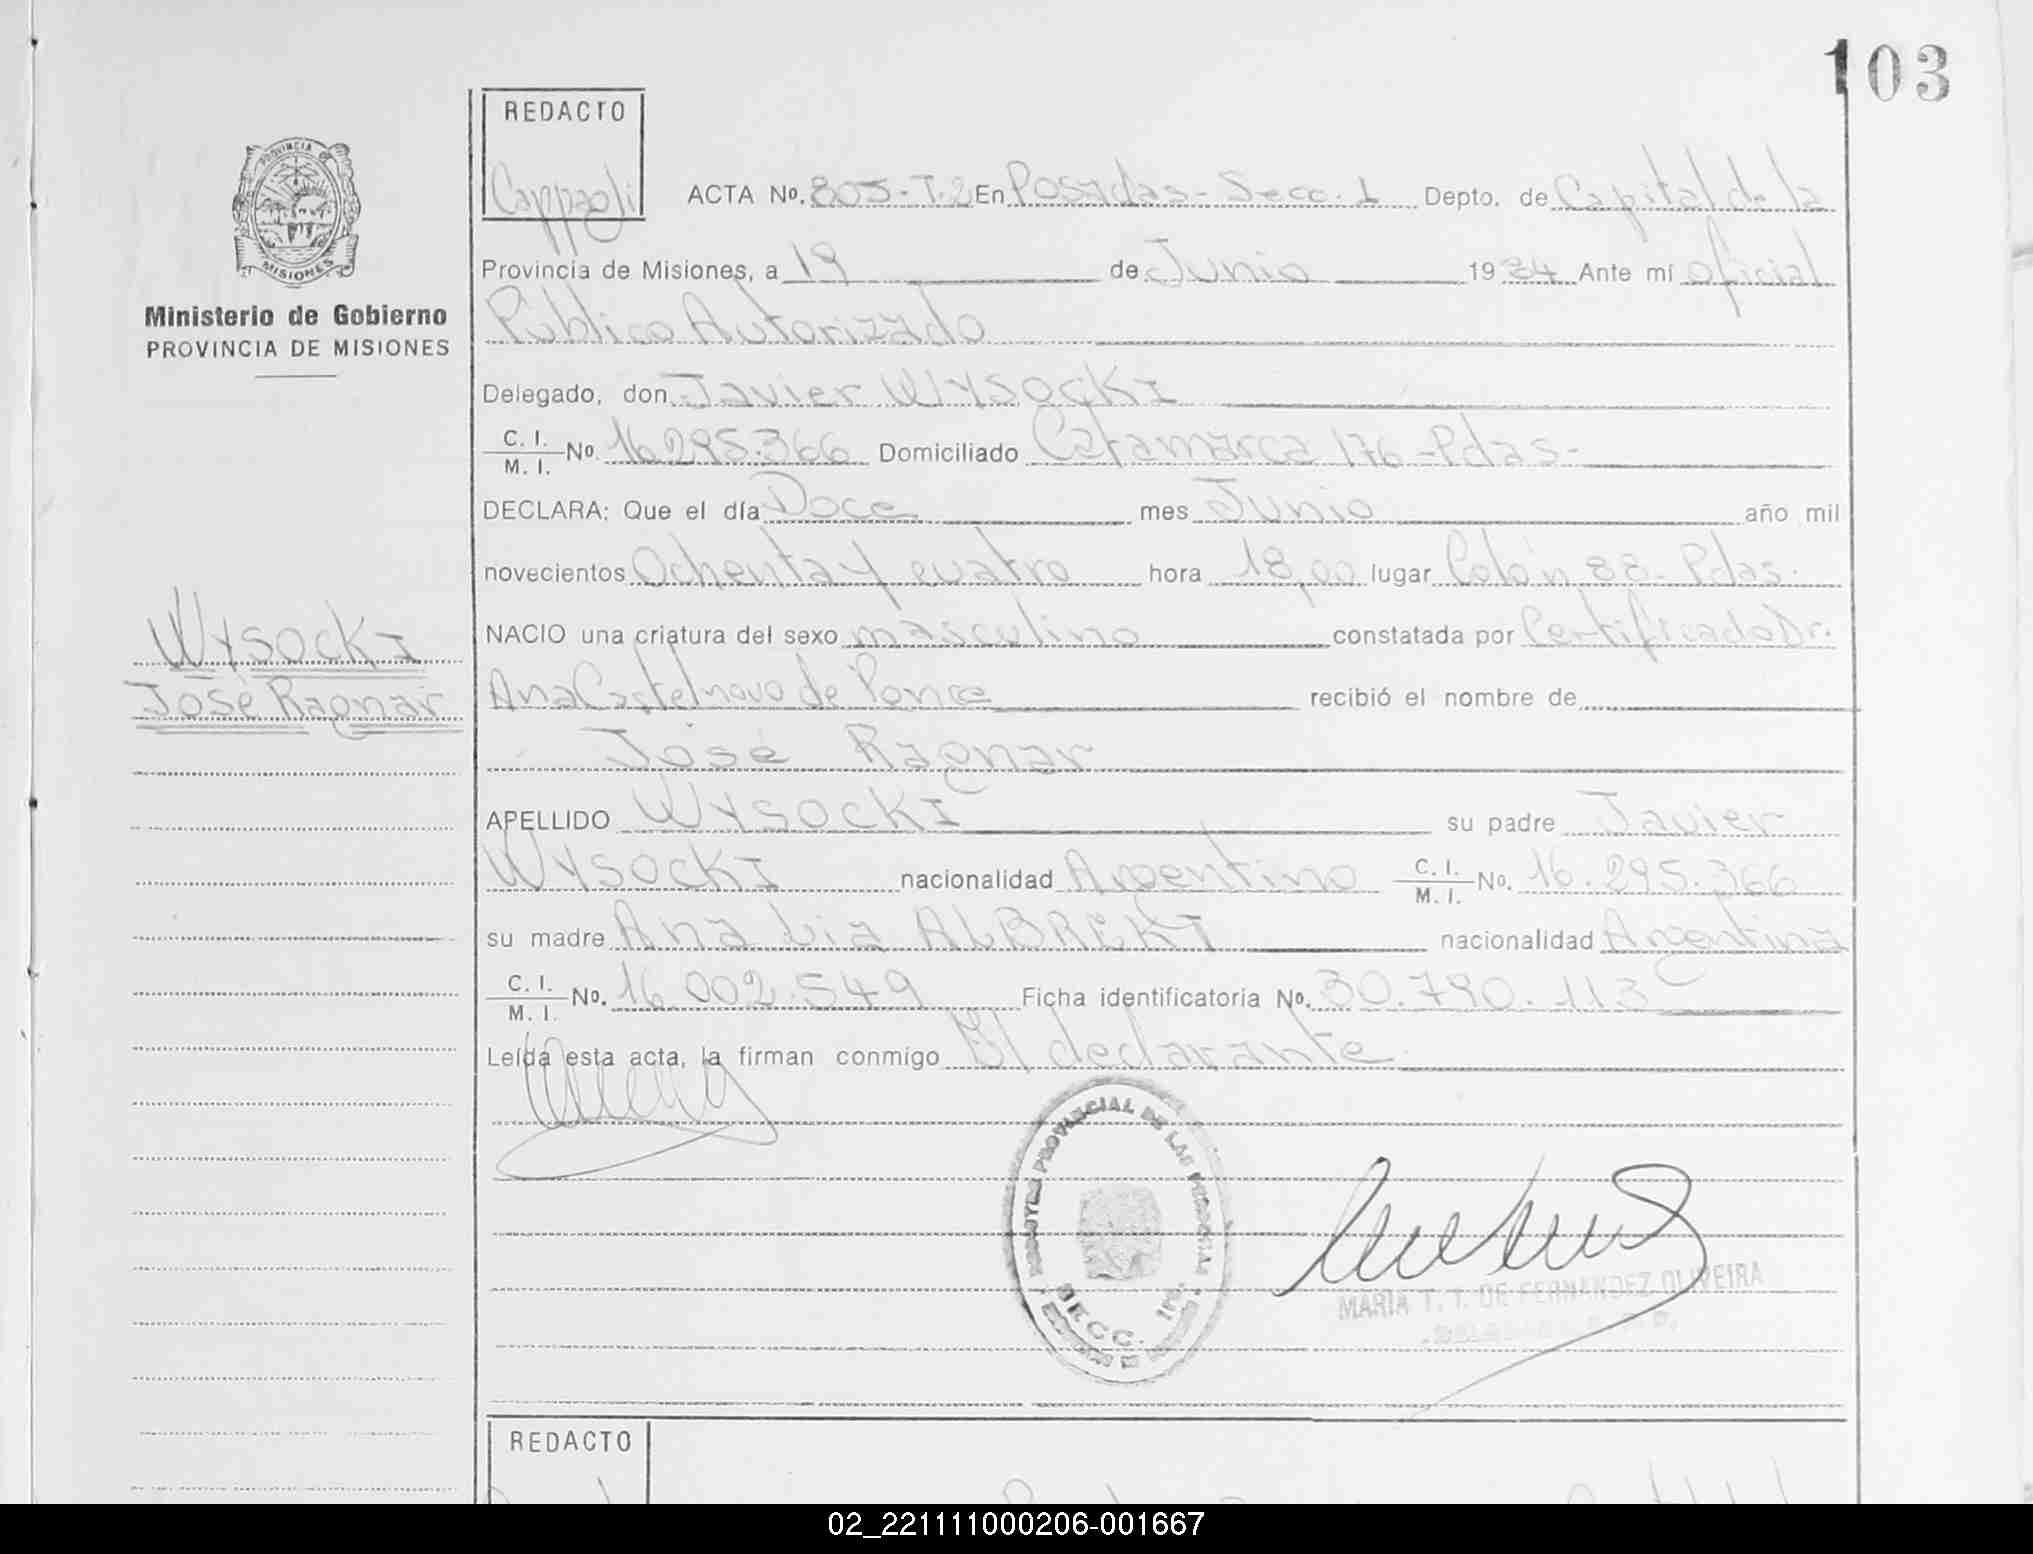 103
REDACTO
Cappaoli
ACTA No. 805-T.2 En Posadas - Secc. 1 Depto. de Capital de la
PROVINCIA
MISIONES
Provincia de Misiones, a 19 de Junio 1984 Ante mí oficial
Ministerio de Gobierno
PROVINCIA DE MISIONES
Público Autorizado
Delegado, don Javier WYSOCKI
C. I.
M. I. No. 16295.366 Domiciliado Catamarca 176 - Pdas -
DECLARA: Que el día Doce mes Junio año mil
novecientos Ochenta y cuatro hora 18,00 lugar Colón 88 - Pdas.
WYSOCKI
José Ragnar
NACIO una criatura del sexo masculino constatada por Certificado Dr.
Ana Castelnovo de Ponce recibió el nombre de
José Ragnar
APELLIDO WYSOCKI su padre Javier
WYSOCKI nacionalidad Argentino C. I.
M. I. No. 16.295.366
su madre Ana Lia ALBREKT nacionalidad Argentina
C. I.
M. I. No. 16.002.549 Ficha identificatoria No. 30.790.113
Leída esta acta, la firman conmigo El declarante
PROVINCIAL DE LAS PERSONAS
SECC. 1ra.
MARIA T. T. DE FERNANDEZ OLIVEIRA
REDACTO
02_221111000206-001667